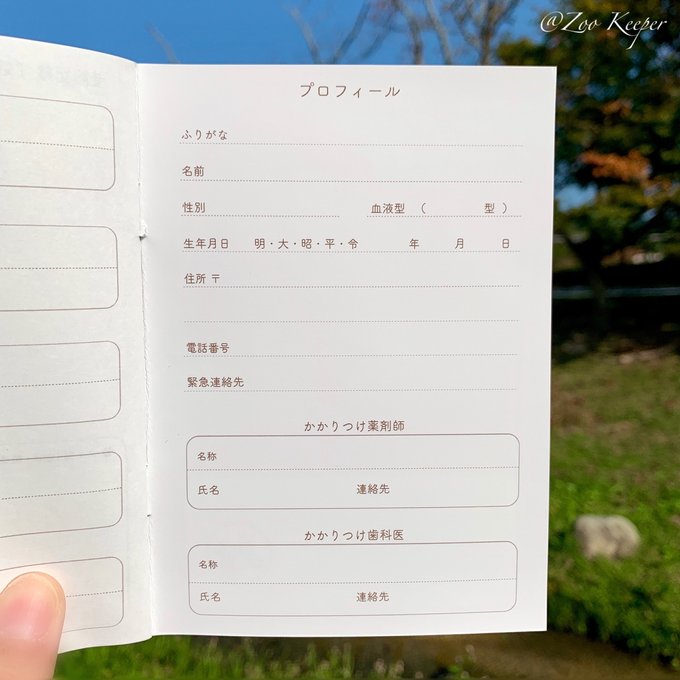 @Zoo Keeper
プロフィール
ふりがな
名前
性別 血液型 （ 型 ）
生年月日 明・大・昭・平・令 年 月 日
住所 〒
電話番号
緊急連絡先
かかりつけ薬剤師
名称
氏名 連絡先
かかりつけ歯科医
名称
氏名 連絡先